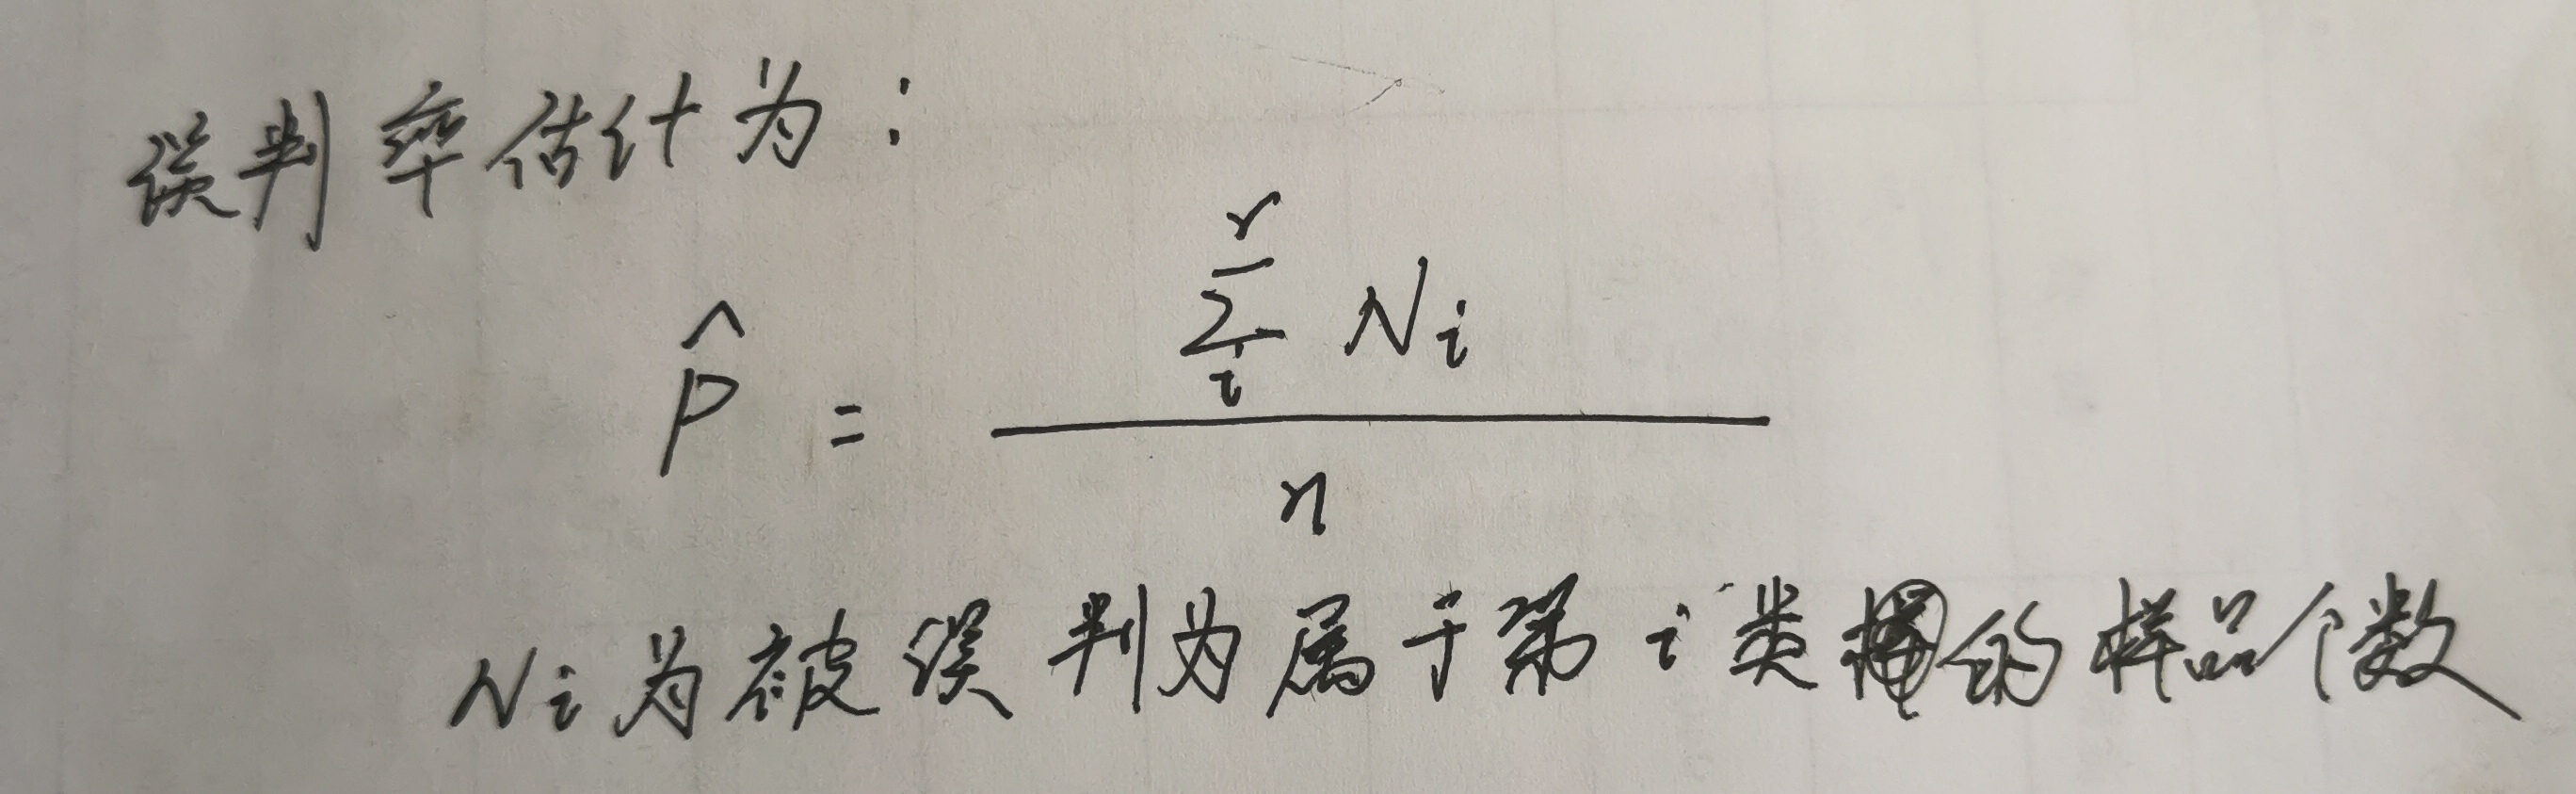 误判率估计为：
p̂ = \frac{\sum_{i}^{r} N_i}{n}
N_i 为被误判为属于第 i 类的样品个数